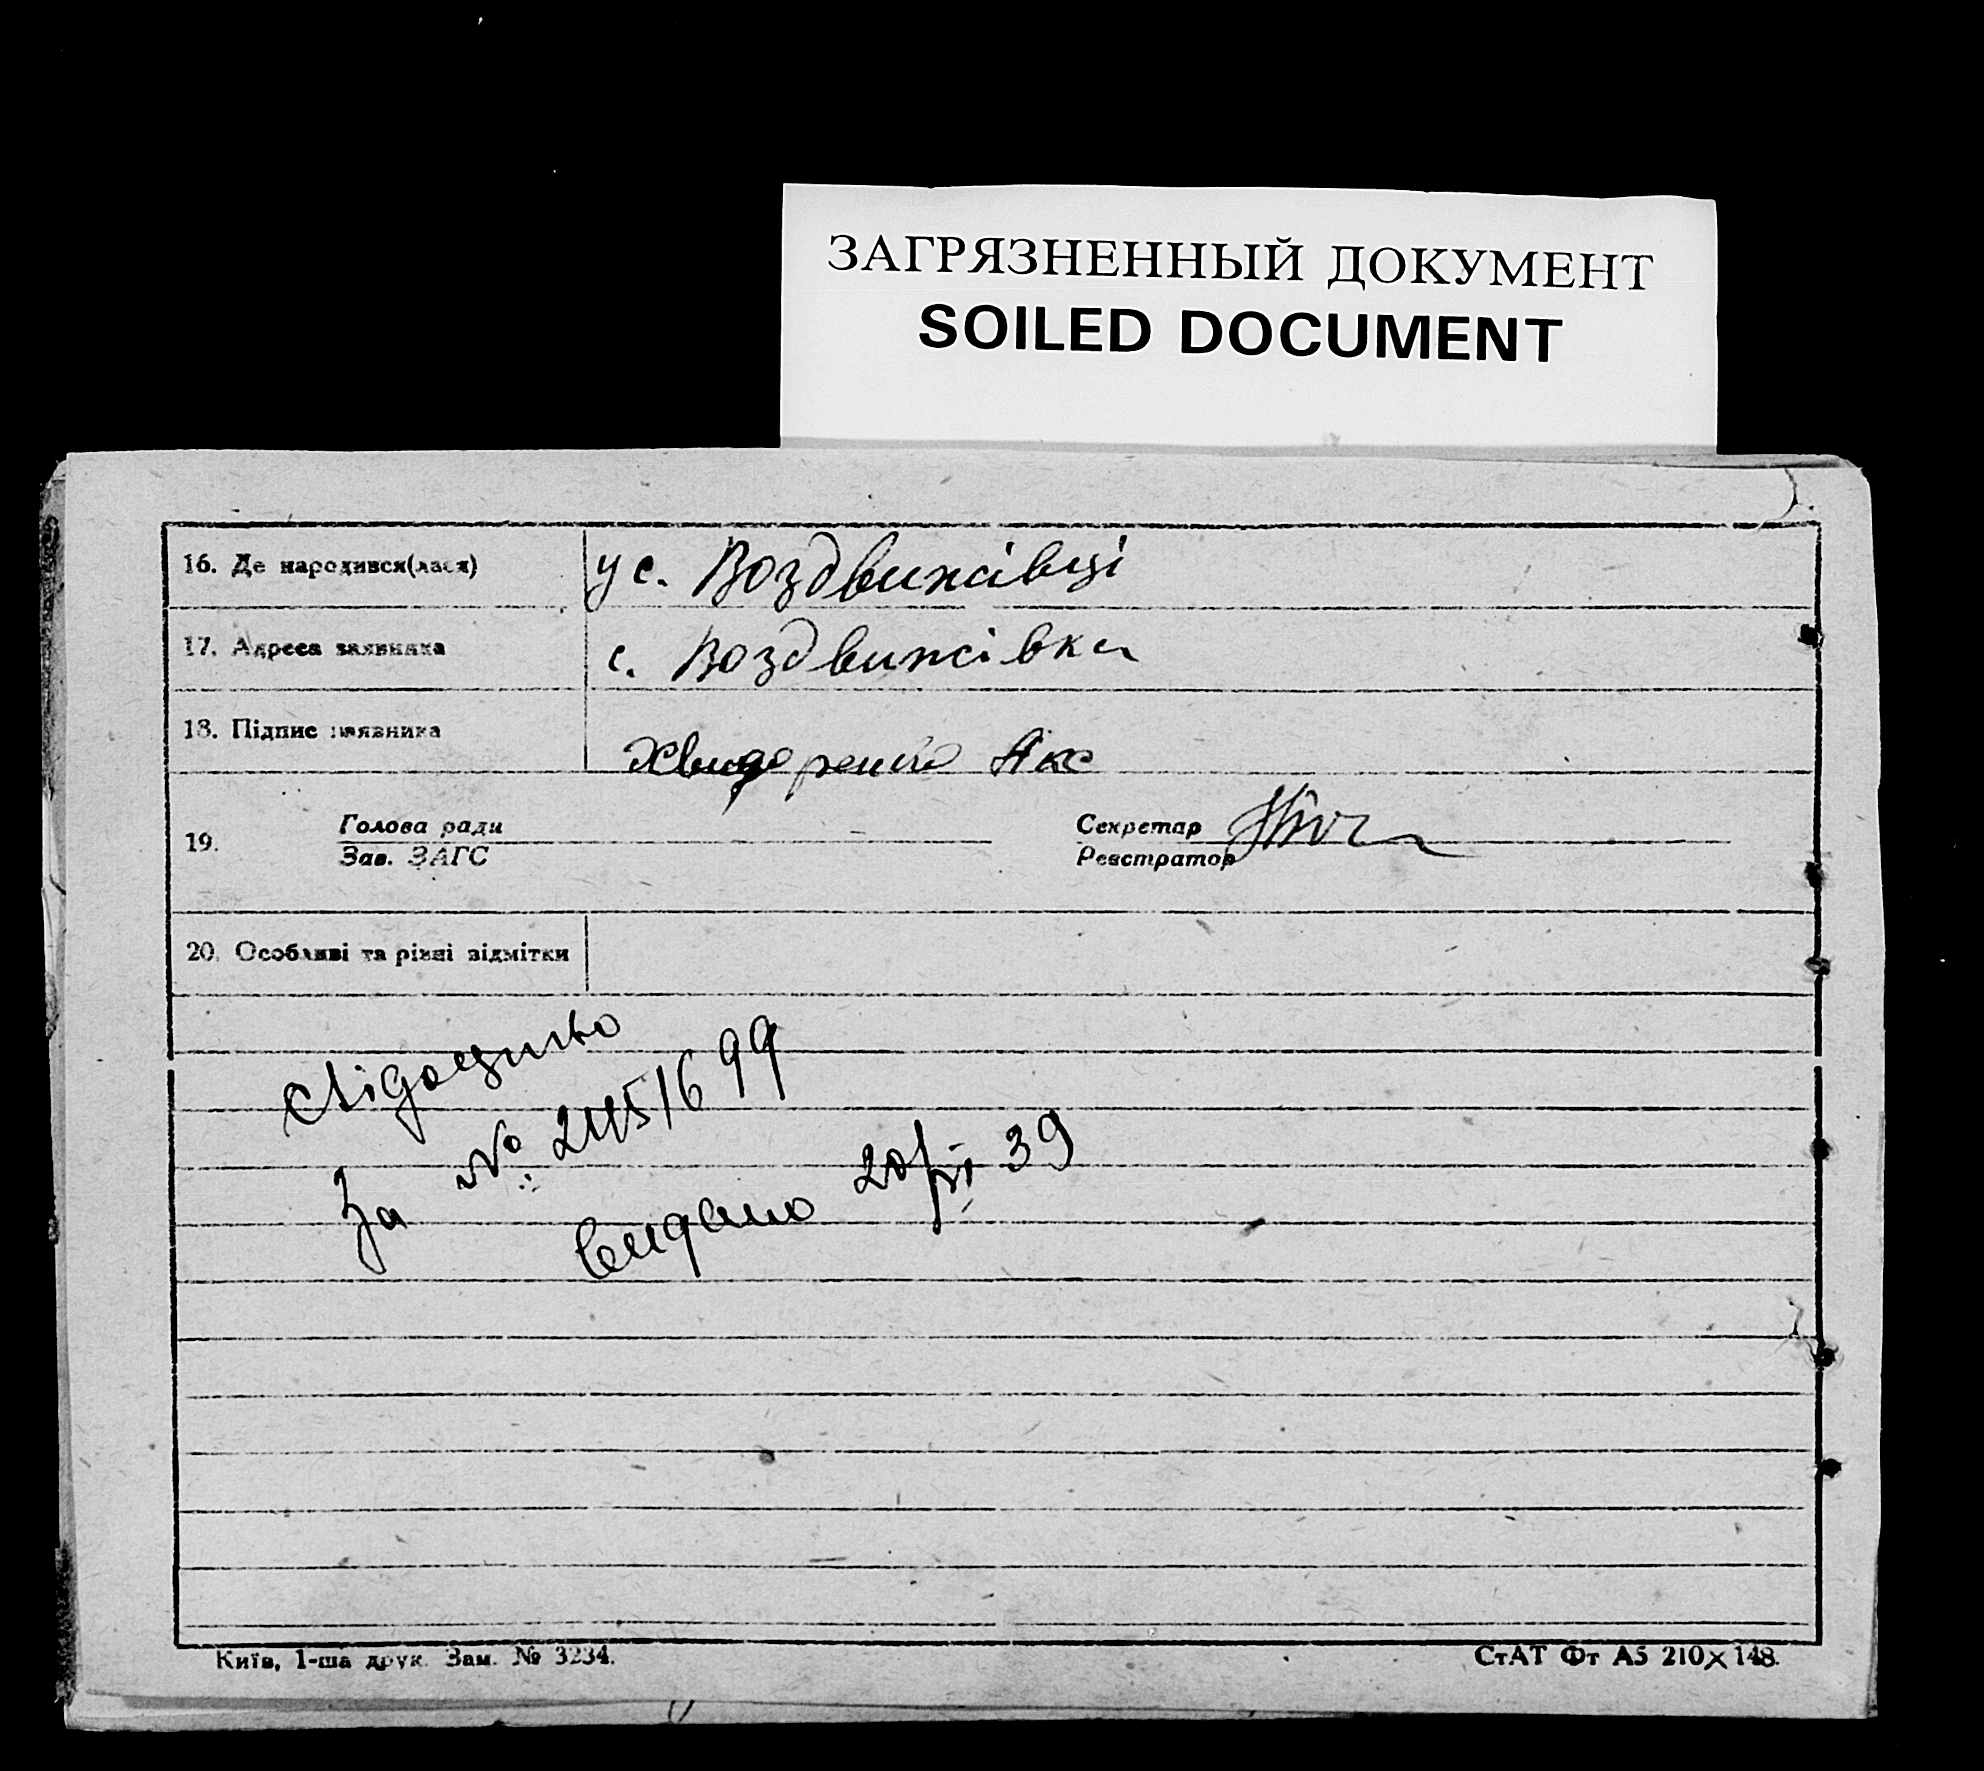 ЗАГРЯЗНЕННЫЙ ДОКУМЕНТ
SOILED DOCUMENT
16. Де народився(лася) у с. Воздвижівці
17. Адреса заявника с. Воздвижівка
18. Підпис заявника Хвидоренко Як
19. Голова ради Секретар
Зав. ЗАГС Реєстратор
20. Особливі та різні відмітки
За № 2451699
видано 20/VI 39
Київ, 1-ша друк. Зам. № 3234.
СтАТ Фт А5 210×148.